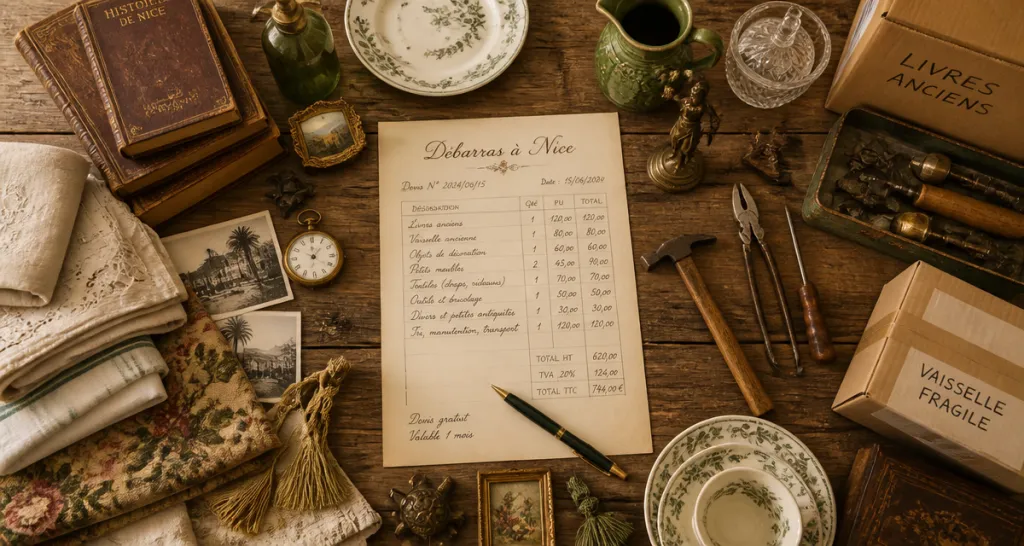 HISTOIRE
DE NICE
LIVRES
ANCIENS
Débarras à Nice
Devis N° 2024/06/15 Date : 15/06/2024
DÉSIGNATION Qté PU TOTAL
Livres anciens 1 120,00 120,00
Vaisselle ancienne 1 80,00 80,00
Objets de décoration 1 60,00 60,00
Petits meubles 2 45,00 90,00
Textiles (draps, rideaux) 1 70,00 70,00
Outils et bricolage 1 50,00 50,00
Divers et petites antiquités 1 30,00 30,00
Tri, manutention, transport 1 120,00 120,00
TOTAL HT 620,00
TVA 20% 124,00
TOTAL TTC 744,00 €
Devis gratuit
Valable 1 mois
VAISSELLE
FRAGILE